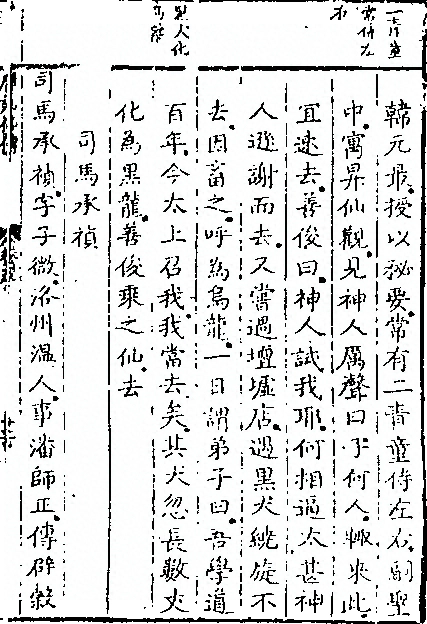 二青童
常侍左
右
黑犬化
為龍
韓元最授以秘要常有二青童侍左右嗣聖
中寓昇仙觀見神人厲聲曰子何人輒來此
宜速去善俊曰神人試我耶何相逼太甚神
人遜謝而去又嘗過壇墟店遇黑犬繞旋不
去因畜之呼為烏龍一日謂弟子曰吾學道
百年今太上召我我當去矣其犬忽長數丈
化為黑龍善俊乘之仙去
司馬承禎
司馬承禎字子微洛州溫人事潘師正傳辟穀